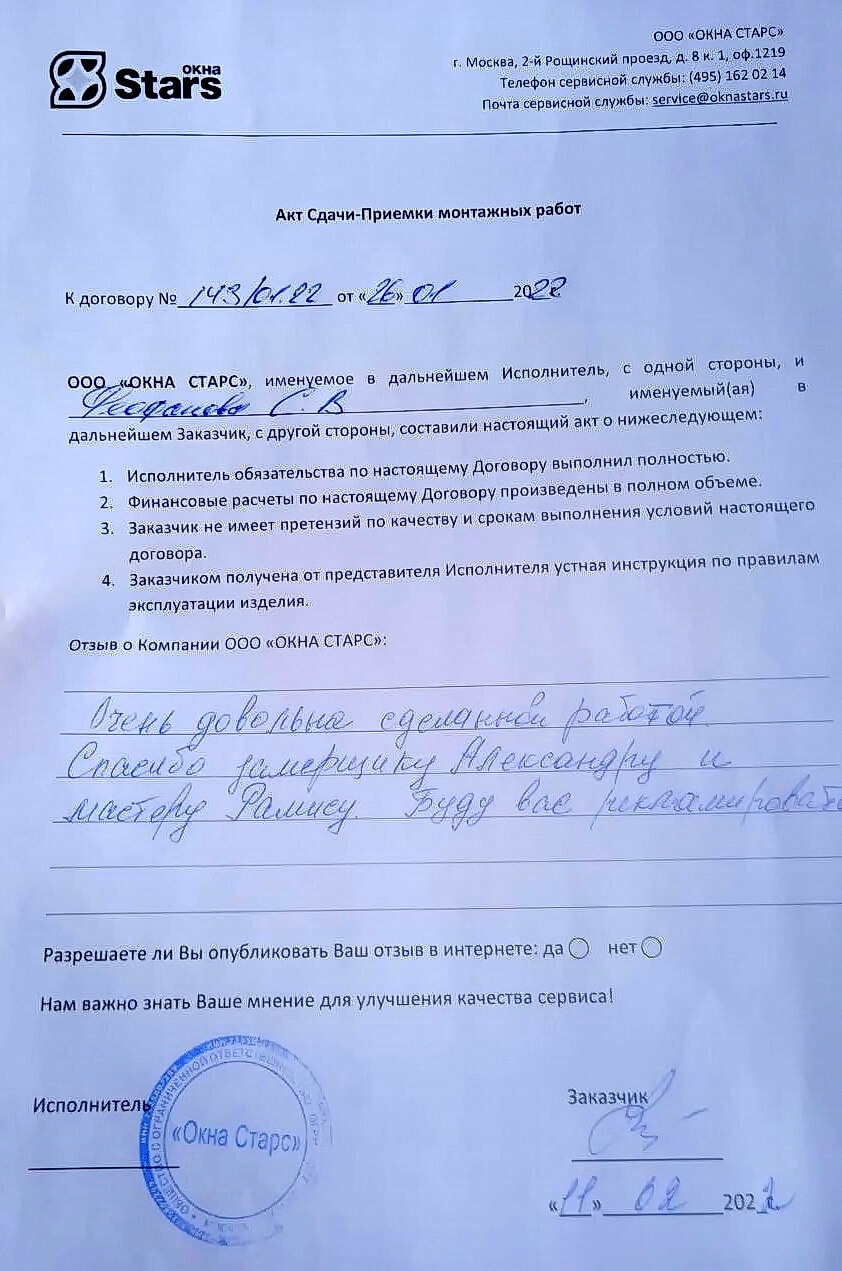 ОКНА
Stars
ООО «ОКНА СТАРС»
г. Москва, 2-й Рощинский проезд, д. 8 к. 1, оф.1219
Телефон сервисной службы: (495) 162 02 14
Почта сервисной службы: service@oknastars.ru
Акт Сдачи-Приемки монтажных работ
К договору № 143/01.22 от «26» 01 2022
ООО «ОКНА СТАРС», именуемое в дальнейшем Исполнитель, с одной стороны, и
Феофанова С. В , именуемый(ая) в
дальнейшем Заказчик, с другой стороны, составили настоящий акт о нижеследующем:
1. Исполнитель обязательства по настоящему Договору выполнил полностью.
2. Финансовые расчеты по настоящему Договору произведены в полном объеме.
3. Заказчик не имеет претензий по качеству и срокам выполнения условий настоящего
договора.
4. Заказчиком получена от представителя Исполнителя устная инструкция по правилам
эксплуатации изделия.
Отзыв о Компании ООО «ОКНА СТАРС»:
Очень довольна сделанной работой.
Спасибо замерщику Александру и
мастеру Рамису. Буду вас рекламировать
Разрешаете ли Вы опубликовать Ваш отзыв в интернете: да нет
Нам важно знать Ваше мнение для улучшения качества сервиса!
Исполнитель
ОБЩЕСТВО С ОГРАНИЧЕННОЙ ОТВЕТСТВЕННО
«Окна Старс»
Заказчик
«11» 02 2022